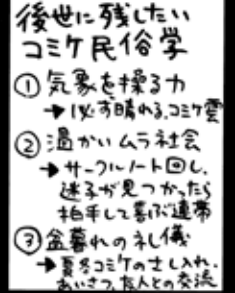 後世に残したい
コミケ民俗学
① 気象を操る力
→ 必ず晴れる、コミケ雲
② 温かいムラ社会
→ サークルノート回し、
迷子が見つかったら
拍手して喜ぶ連帯
③ 盆暮れの礼儀
→ 夏冬コミケのさし入れ、
あいさつ、友人との交流